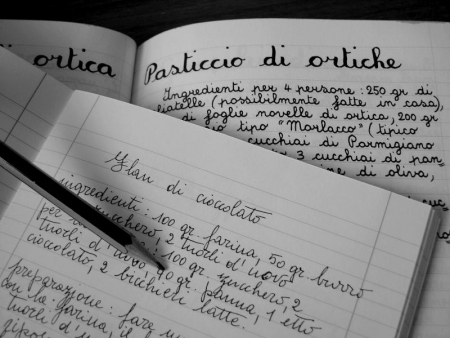 di ortica
Pasticcio di ortiche
Ingredienti per 4 persone: 250 gr di
(possibilmente fatte in casa),
di foglie novelle di ortica, 200 gr
tipo "Morlacco" (tipico
cucchiai di Parmigiano
3 cucchiai di pan
di oliva,
Glan di cioccolato
ingredienti: 100 gr. farina, 50 gr burro
zucchero, 2 tuorli d'uovo
100 gr. zucchero, 2
tuorli d'uovo, 40 gr. panna, 1 etto
cioccolato, 2 bicchieri latte.
preparazione: fare
con la farina, il
tuorli d'u